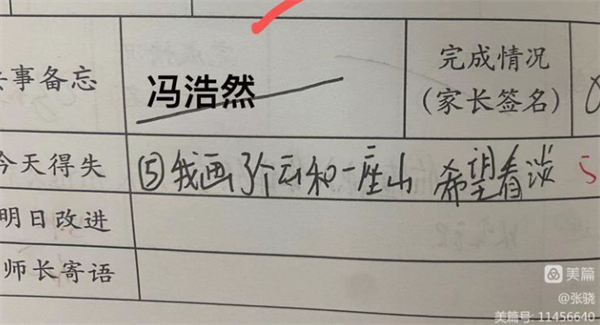 事备忘
冯浩然
完成情况
(家长签名)
今天得失
⑤我画了个云和一座山 希望看淡
5
明日改进
师长寄语
美篇
@张骁
美篇号: 11456640